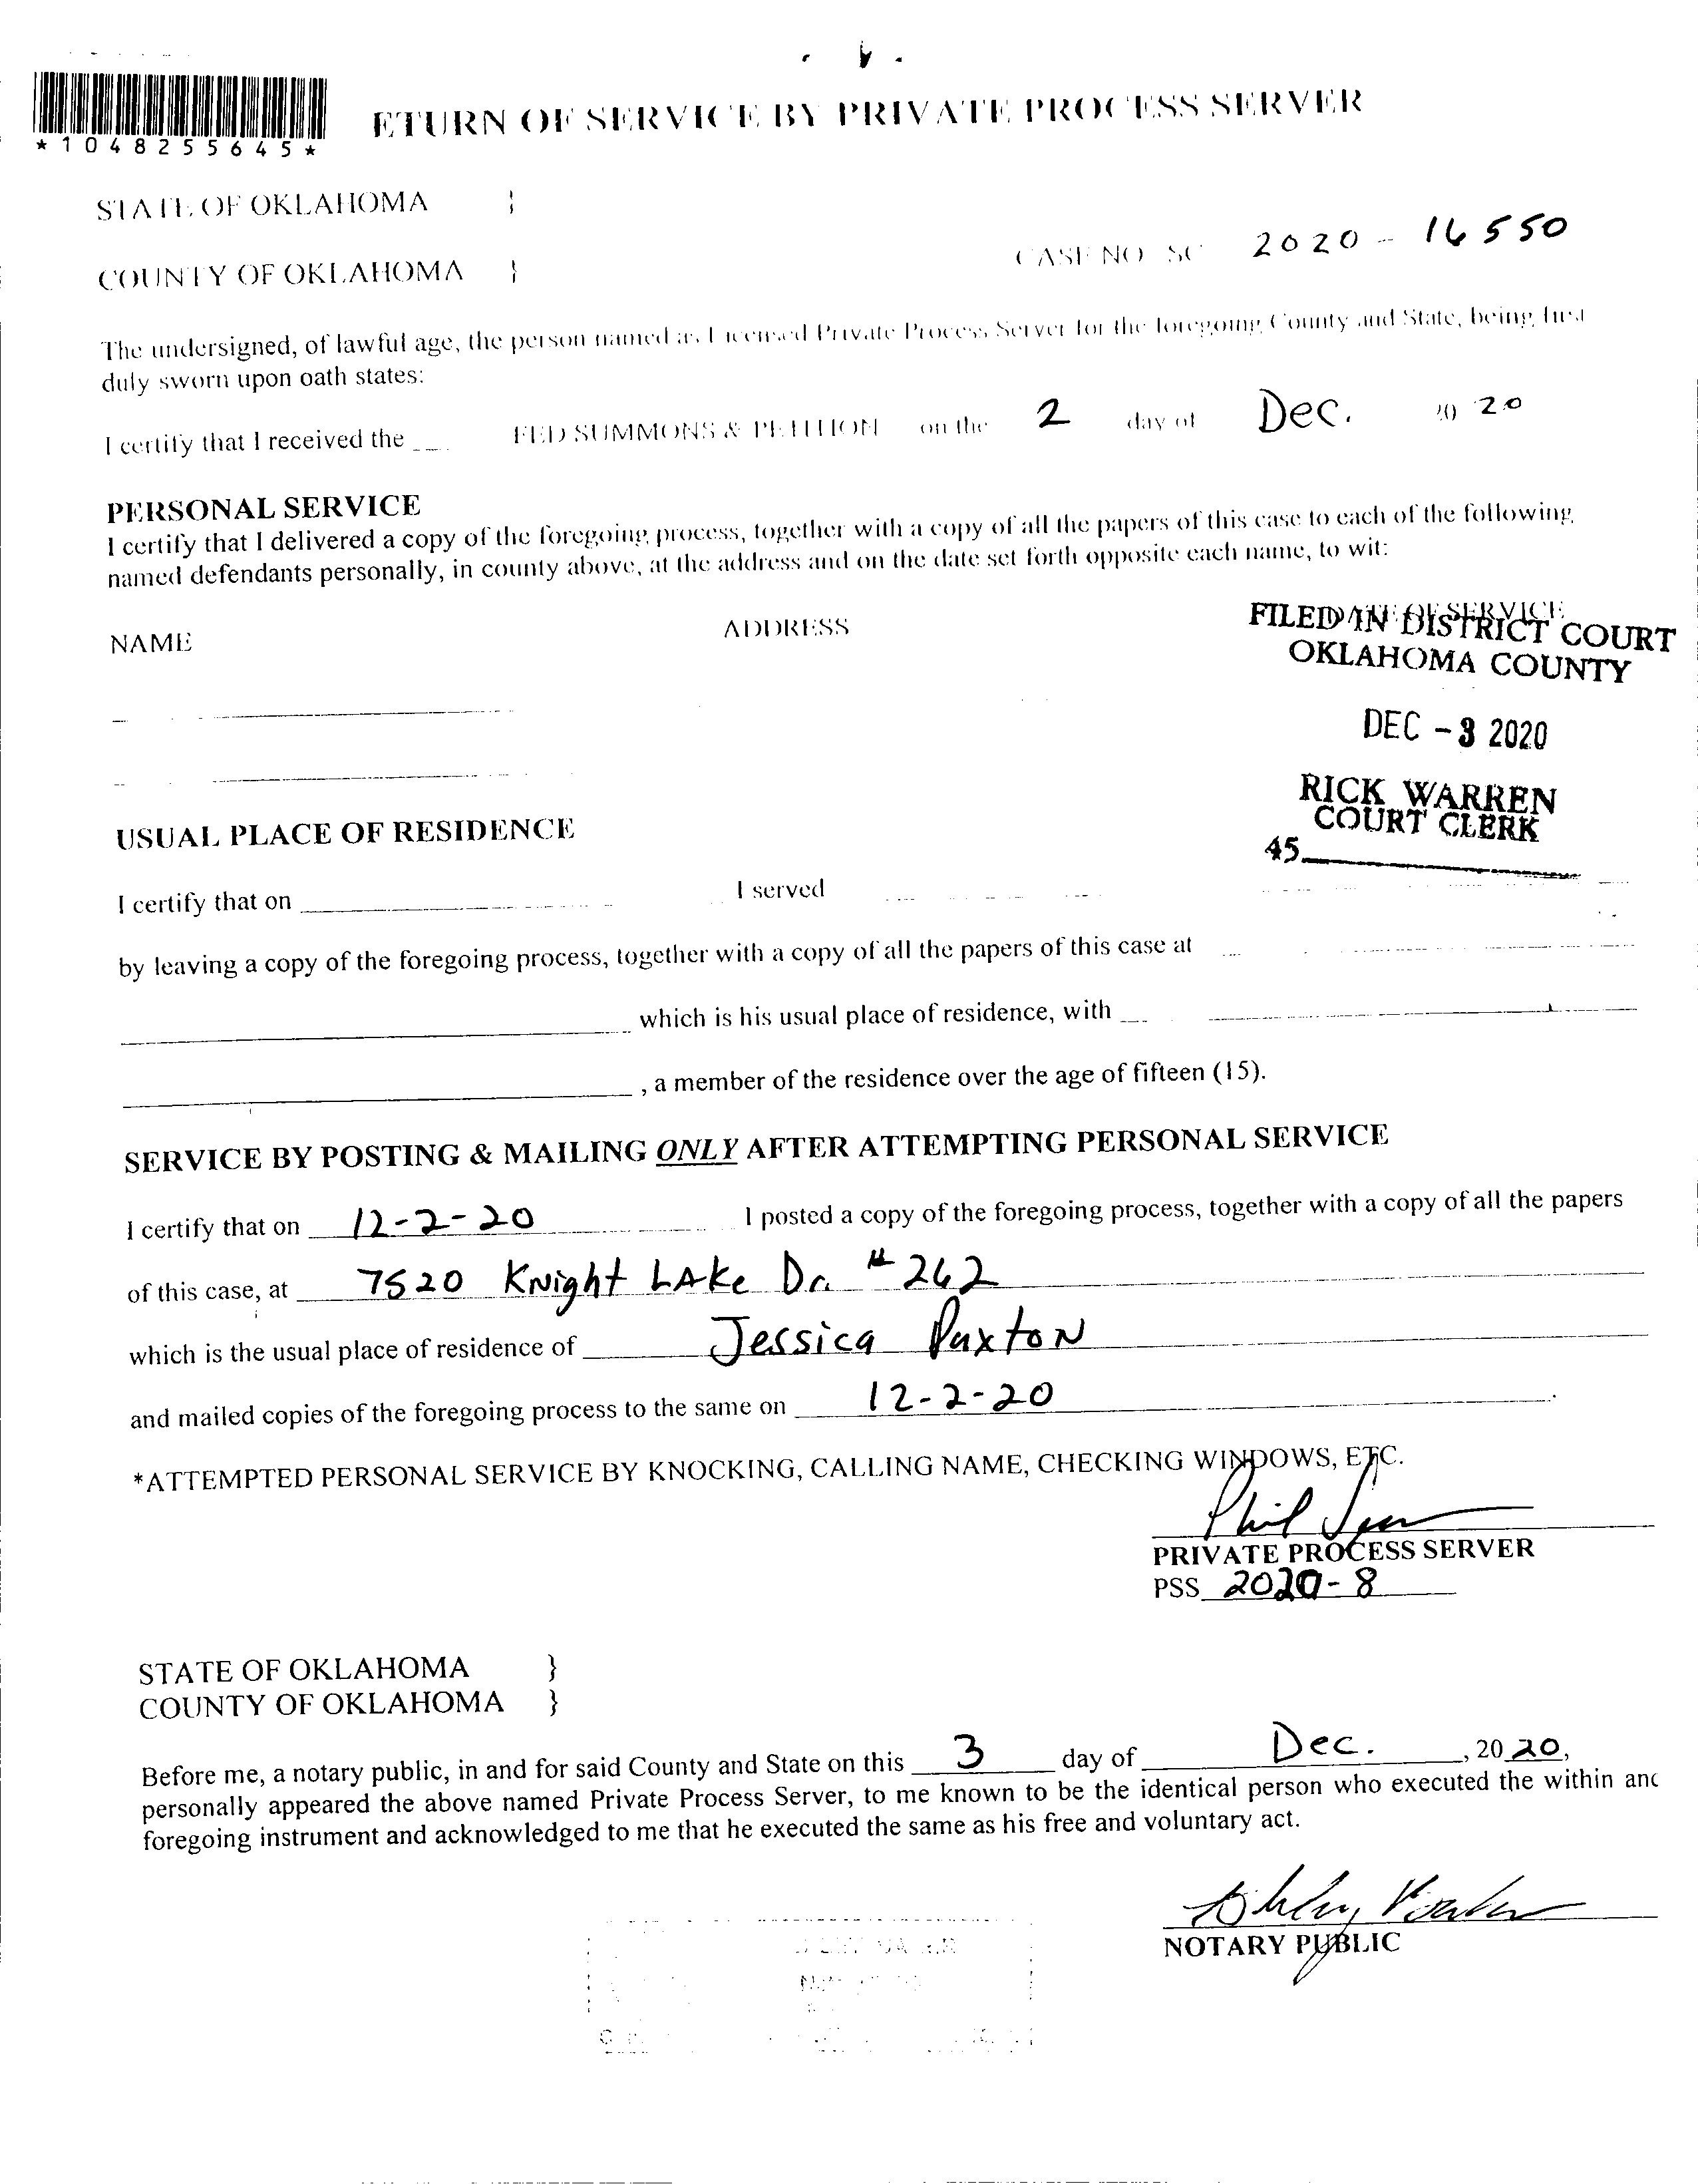 *1048255645*
ETURN OF SERVICE BY PRIVATE PROCESS SERVER
STATE OF OKLAHOMA }
CASE NO SC 2020 - 16550
COUNTY OF OKLAHOMA }
The undersigned, of lawful age, the person named as Licensed Private Process Server for the foregoing County and State, being first
duly sworn upon oath states:
I certify that I received the FED SUMMONS & PETITION on the 2 day of Dec. 20 20
PERSONAL SERVICE
I certify that I delivered a copy of the foregoing process, together with a copy of all the papers of this case to each of the following
named defendants personally, in county above, at the address and on the date set forth opposite each name, to wit:
NAME ADDRESS DATE OF SERVICE
FILED IN DISTRICT COURT
OKLAHOMA COUNTY
DEC -3 2020
RICK WARREN
COURT CLERK
45
USUAL PLACE OF RESIDENCE
I certify that on I served
by leaving a copy of the foregoing process, together with a copy of all the papers of this case at
which is his usual place of residence, with
, a member of the residence over the age of fifteen (15).
SERVICE BY POSTING & MAILING ONLY AFTER ATTEMPTING PERSONAL SERVICE
I certify that on 12-2-20 I posted a copy of the foregoing process, together with a copy of all the papers
of this case, at 7520 Knight Lake Dr. #262
which is the usual place of residence of Jessica Paxton
and mailed copies of the foregoing process to the same on 12-2-20.
*ATTEMPTED PERSONAL SERVICE BY KNOCKING, CALLING NAME, CHECKING WINDOWS, ETC.
Phil
PRIVATE PROCESS SERVER
PSS 2020-8
STATE OF OKLAHOMA }
COUNTY OF OKLAHOMA }
Before me, a notary public, in and for said County and State on this 3 day of Dec. , 20 20,
personally appeared the above named Private Process Server, to me known to be the identical person who executed the within and
foregoing instrument and acknowledged to me that he executed the same as his free and voluntary act.
NOTARY PUBLIC